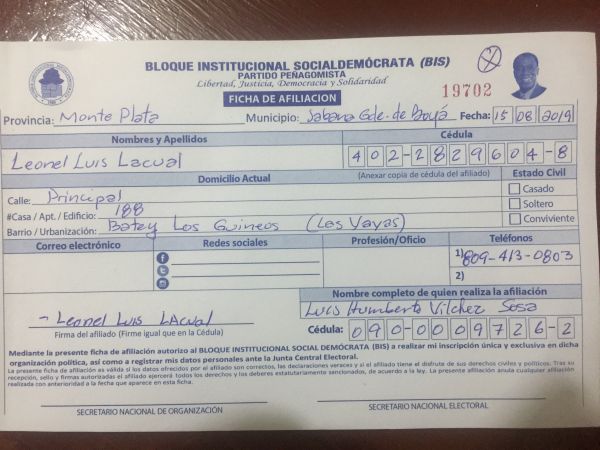 BLOQUE INSTITUCIONAL SOCIALDEMÓCRATA (BIS)
PARTIDO PEÑAGOMISTA
Libertad, Justicia, Democracia y Solidaridad
19702
FICHA DE AFILIACION
Provincia: Monte Plata Municipio: Sabana Gde. de Boyá Fecha: 15 08 2019
Nombres y Apellidos Cédula
Leonel Luis Lacual 402-2829604-8
Domicilio Actual (Anexar copia de cédula del afiliado) Estado Civil
Calle: Principal Casado
#Casa / Apt. / Edificio: 188 Soltero
Barrio / Urbanización: Batey Los Guineos (Las Yayas) Conviviente
Correo electrónico Redes sociales Profesión/Oficio Teléfonos
1) 809-413-0803
2)
Nombre completo de quien realiza la afiliación
Luis Humberto Vilchez Sosa
- Leonel Luis LAcual
Firma del afiliado (Firme igual que en la Cédula) Cédula: 090-0009726-2
Mediante la presente ficha de afiliación autorizo al BLOQUE INSTITUCIONAL SOCIAL DEMÓCRATA (BIS) a realizar mi inscripción única y exclusiva en dicha
organización política, así como a registrar mis datos personales ante la Junta Central Electoral.
La presente ficha de afiliación es válida si los datos ofrecidos por el afiliado son correctos, las declaraciones veraces y si el afiliado tiene el disfrute de sus derechos civiles y políticos. Tras su
recepción, sello y firmas autorizadas el afiliado ejercerá todos los derechos y los deberes estatutariamente sancionados, de acuerdo a la ley. La presente afiliación anula cualquier afiliación
realizada con anterioridad a la fecha que aparece en esta ficha.
SECRETARIO NACIONAL DE ORGANIZACIÓN SECRETARIO NACIONAL ELECTORAL